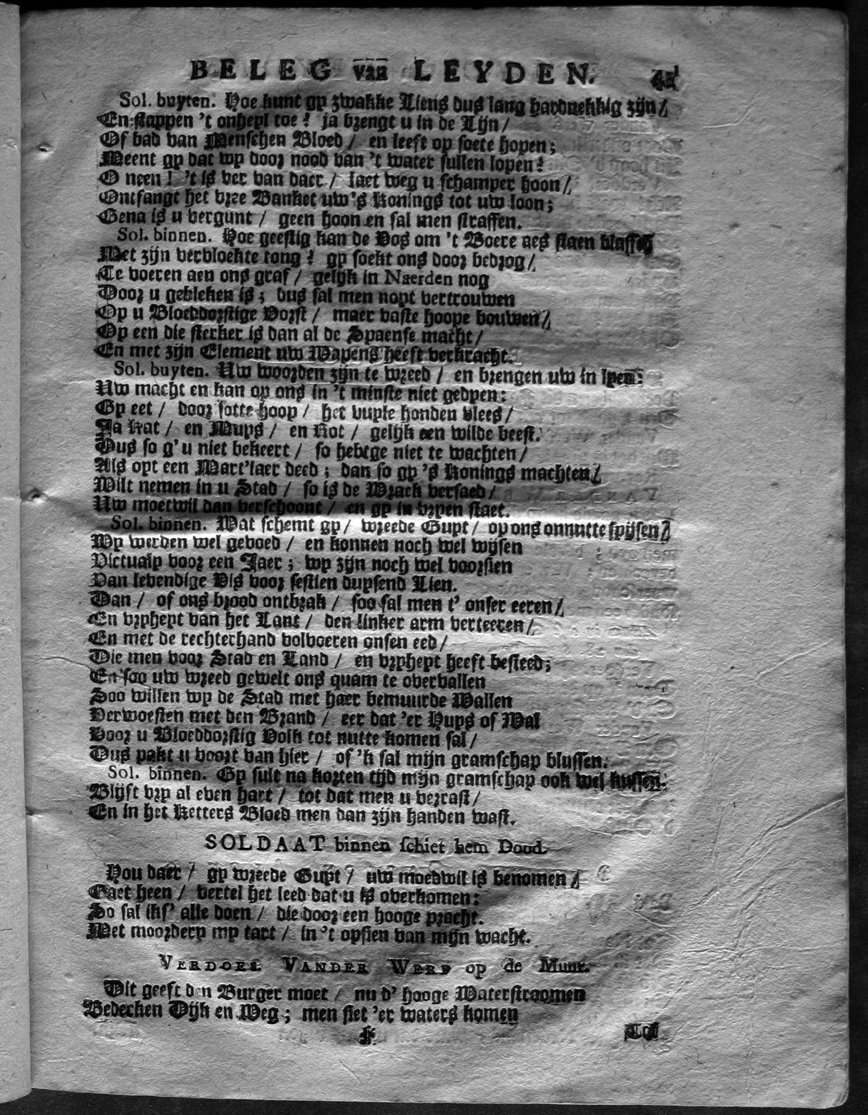 BELEG van LEYDEN.
Sol. buyten. Hoe kunt gy zwakke Liens dus lang hardnekkig zijn /
En stappen 't onheyl toe? ja brengt u in de Lijn /
Of bad van Menschen Bloed / en leeft op soete hopen;
Meent gy dat wy door nood van 't water sullen lopen?
O neen! 't is ver van daer / laet weg u schamper hoon /
Ontfangt het vree Banket uw's Konings tot uw loon;
Gena is u vergunt / geen hoon en sal men straffen.
Sol. binnen. Hoe geestig kan de Vos om 't Boere aes staen blaffen
Met zijn vervloekte tong? gy soekt ons door bedrog /
Te voeren aen ons graf / gelijk in Naerden nog
Door u gebleken is; dus sal men noyt vertrouwen
Op u Bloeddorstige Vorst / maer vaste hoope bouwen /
Op een die sterker is dan al de Spaense macht /
En met zijn Element uw Wapens heeft verkracht.
Sol. buyten. Uw woorden zijn te wreed / en brengen uw in lyen:
Uw macht en kan op ons in 't minste niet gedyen:
Gy eet / door sotte hoop / het vuyle honden vlees /
Ja Kat / en Muys / en Rot / gelijk een wilde beest.
Dus so g' u niet bekeert / so hebtge niet te wachten /
Als oyt een Mart'laer deed; dan so gy 's Konings machten /
Wilt nemen in u Stad / so is de Wrack versaed /
Uw moetwil dan verschoont / en gy in vryen staet.
Sol. binnen. Wat schemt gy / wreede Guyt / op ons onnutte spijsen /
Wy werden wel gevoed / en konnen noch wel wijsen
Victualy voor een Jaer; wy zijn noch wel voorsien
Van levendige Vis voor sestien duysend Lien.
Dan / of ons brood ontbrak / soo sal men t' onser eeren /
En vryheyt van het Lant / den linker arm verteeren /
En met de rechterhand volvoeren onsen eed /
Die men voor Stad en Land / en vryheyt heeft besteed;
En soo uw wreed gewelt ons quam te overvallen
Soo willen wy de Stad met haer bemuurde Wallen
Verwoesten met den Brand / eer dat 'er Huys of Wal
Voor u Bloeddorstig Volk tot nutte komen sal /
Dus pakt u voort van hier / of 'k sal mijn gramschap blussen.
Sol. binnen. Gy sult na korten tijd mijn gramschap ook wel kussen.
Blijft vry al even hart / tot dat men u verrast /
En in het Ketters Bloed men dan zijn handen wast.
SOLDAAT binnen schiet hem Dood.
Hou daer / gy wreede Guyt / uw moedwil is benomen /
Gaet heen / vertel het leed dat u is overkomen:
So sal ik s' alle doen / die door een hooge pracht.
Met moordery my tart / in 't opsien van mijn wacht.
VERDOES. VANDER WERF op de Muur.
Dit geeft den Burger moet / nu d' hooge Waterstroomen
Bedecken Dijk en Weg; men siet 'er waters komen